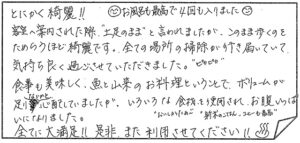 とにかく綺麗!! お風呂も最高で4回も入りました
客室へ案内された際、"土足のまま"と言われましたが、このまま歩くのを
ためらうほど綺麗です。全ての場所の掃除が行き届いていて
気持ち良く過ごさせていただきました。
食事も美味しく、魚と山来のお料理ということで、ボリュームが
足りるか心配していましたが、いろいろな食材を使用され、お腹いっぱい
になりました。
全てに大満足!! 是非、また利用させてください!!